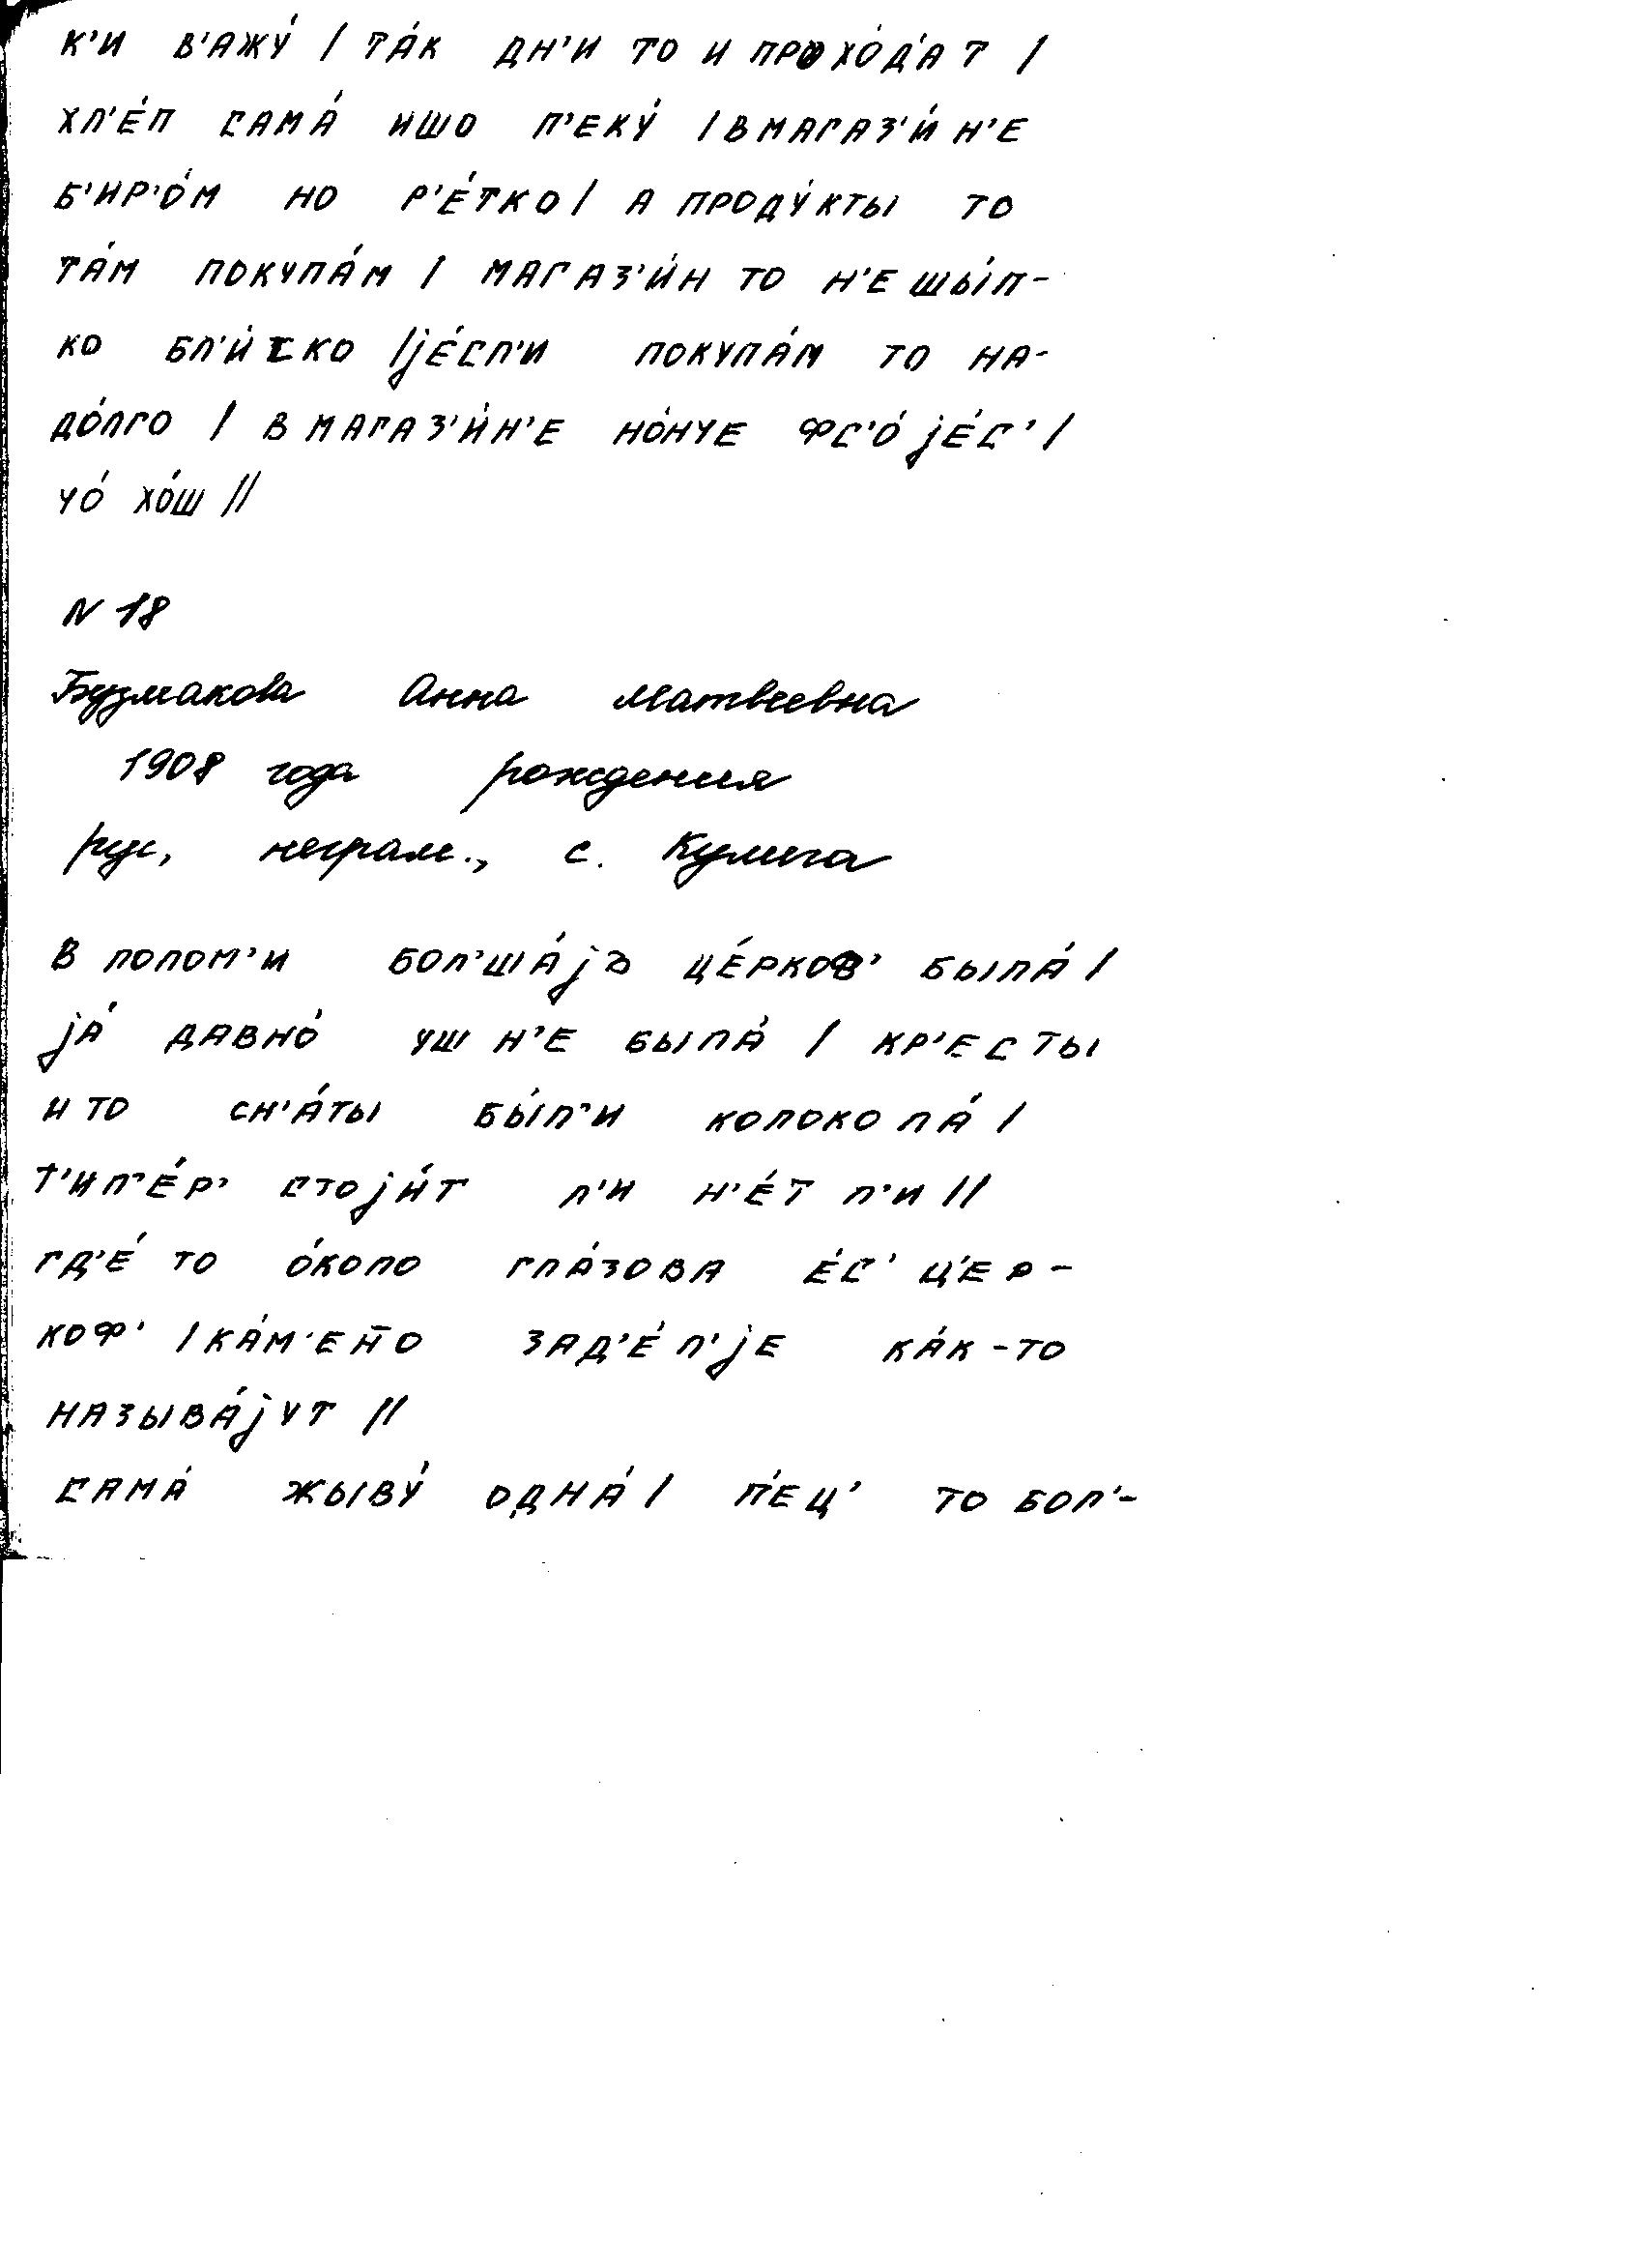 к'и в'ажу́ / та́к дн'и то и прохо́д'ат /
хл'е́п сама́ ишо п'еку́ / в магаз'и́н'е
б'ир'о́м но р'е́тко / а проду́кты то
та́м покупа́м / магаз'и́н то н'е шы́п-
ко бл'и́ско / jе́сл'и покупа́м то на-
до́лго / в магаз'и́н'е но́нче фс'о́ jе́с' /
чо́ хо́ш //
N 18
Бузмакова Анна Матвеевна
1908 года рождения
рус, неграм., с. Кулига
в полом'и бол'ша́jъ це́рков' была́ /
jа́ давно́ уш н'е была́ / кр'есты
и то сн'а́ты бы́л'и колокола́ /
т'ип'е́р' стоjи́т л'и н'е́т л'и //
гд'е́ то о́коло гла́зова е́с' ц'ер-
коф' / ка́м'ен̄о зад'е́л'jе ка́к-то
называ́jут //
сама́ жыву́ одна́ / п'ец' то бол'-